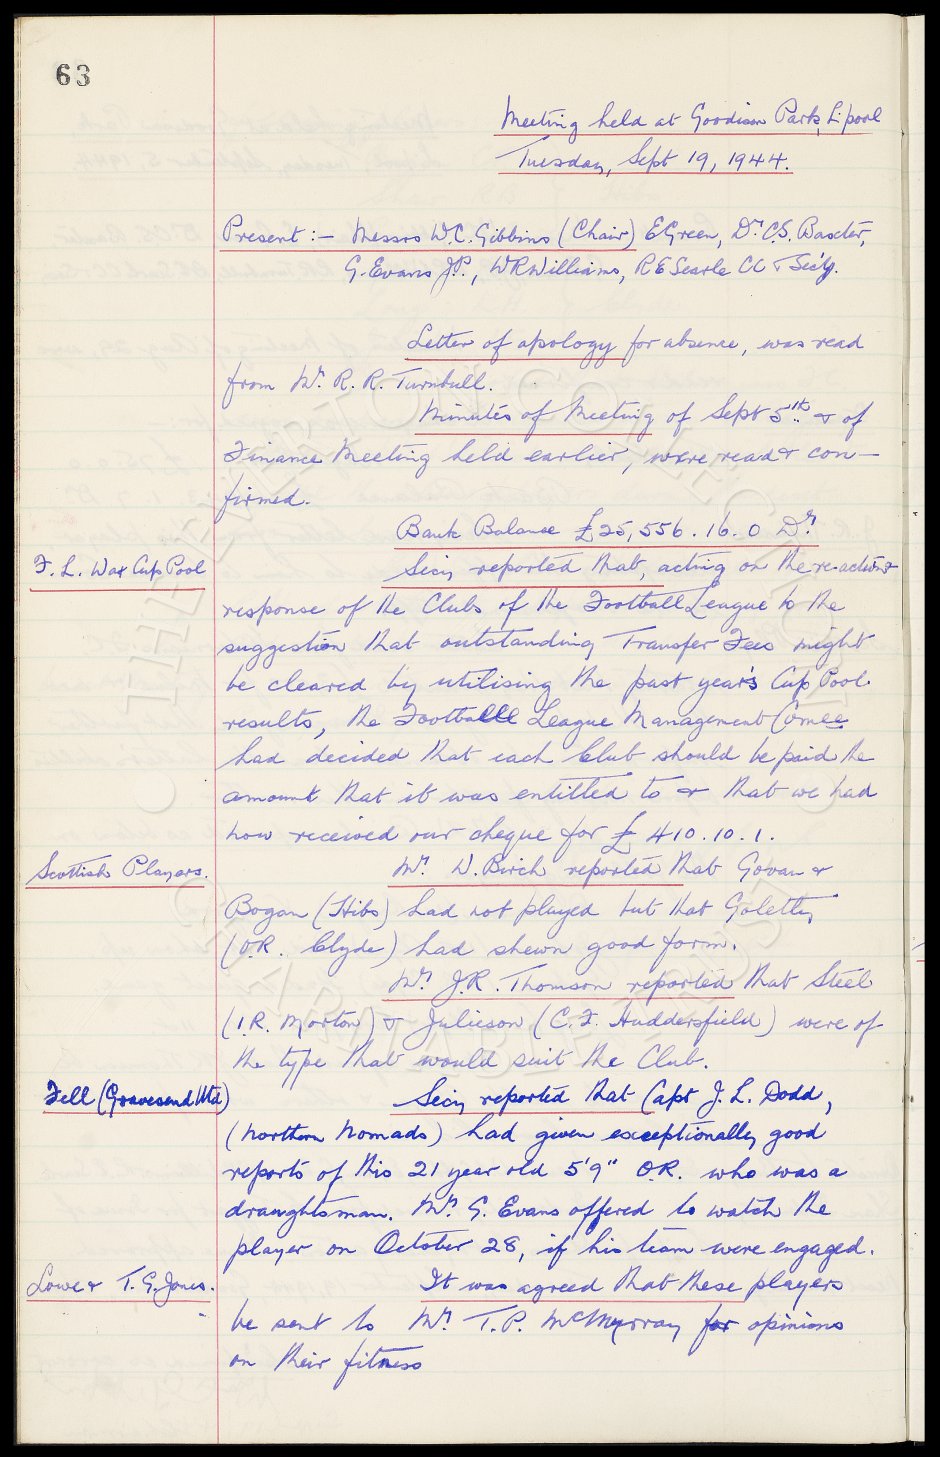 63
Meeting held at Goodison Park, L'pool
Tuesday, Sept 19, 1944.
Present :- Messrs W.C. Gibbins (Chair) E Green, Dr C.S. Baxter,
G. Evans J.P., W R Williams, R E Searle CC & Sec'y.
Letter of apology for absence, was read
from Mr R. R. Turnbull.
Minutes of Meeting of Sept 5th & of
Finance Meeting held earlier, were read & con-
firmed.
Bank Balance £25,556.16.0 Dr
F. L. War Cup Pool
Secy reported that, acting on the re-action &
response of the Clubs of the Football League to the
suggestion that outstanding Transfer Fees might
be cleared by utilising the past year's Cup Pool
results, the Football League Management Comee
had decided that each Club should be paid the
amount that it was entitled to & that we had
now received our cheque for £410.10.1.
Scottish Players.
Mr W. Birch reported that Govan &
Bogan (Hibs) had not played but that Galetty
(O.R. Clyde) had shewn good form.
Mr J.R. Thomson reported that Steel
(I.R. Morton) & Julieson (C.F. Huddersfield) were of
the type that would suit the Club.
Fell (Gravesend Utd)
Secy reported that Capt J. L. Dodd,
(Northern Nomads) had given exceptionally good
reports of this 21 year old 5'9" O.R. who was a
draughtsman. Mr G. Evans offered to watch the
player on October 28, if his team were engaged.
Lowe & T. G. Jones.
It was agreed that these players
be sent to Mr T.P. McMurray for opinions
on their fitness
THE EVERTON COLLECTION
CHARITABLE TRUST